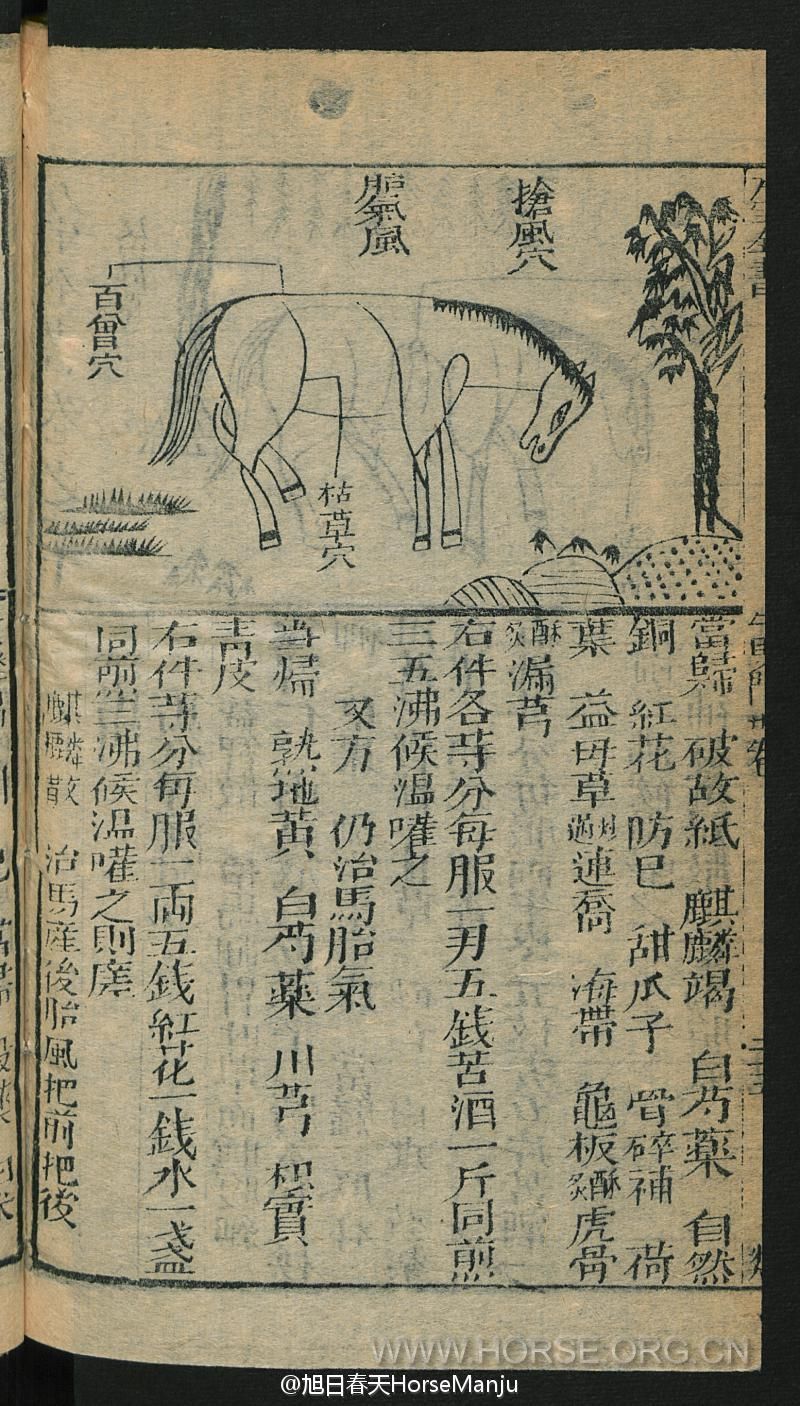 搶風穴
胎氣風
百會穴
枯草穴
當歸　破故紙　麒麟竭　白芍藥　自然
銅　紅花　防巳　甜瓜子　骨碎補　荷
葉　益母草炒過連喬　海帶　龜板酥炙虎骨
酥炙漏芦
右件各等分每服一两五錢苦酒一斤同煎
三五沸候温嚾之
又方　仍治馬胎氣
當帰　熟地黄　白芍藥　川芎　枳實
青皮
右件等分每服二兩五錢紅花一錢水一盞
同煎三沸候温嚾之則㾾
麒麟散　治馬産後胎風把前把後
WWW.HORSE.ORG.CN
@旭日春天HorseManju